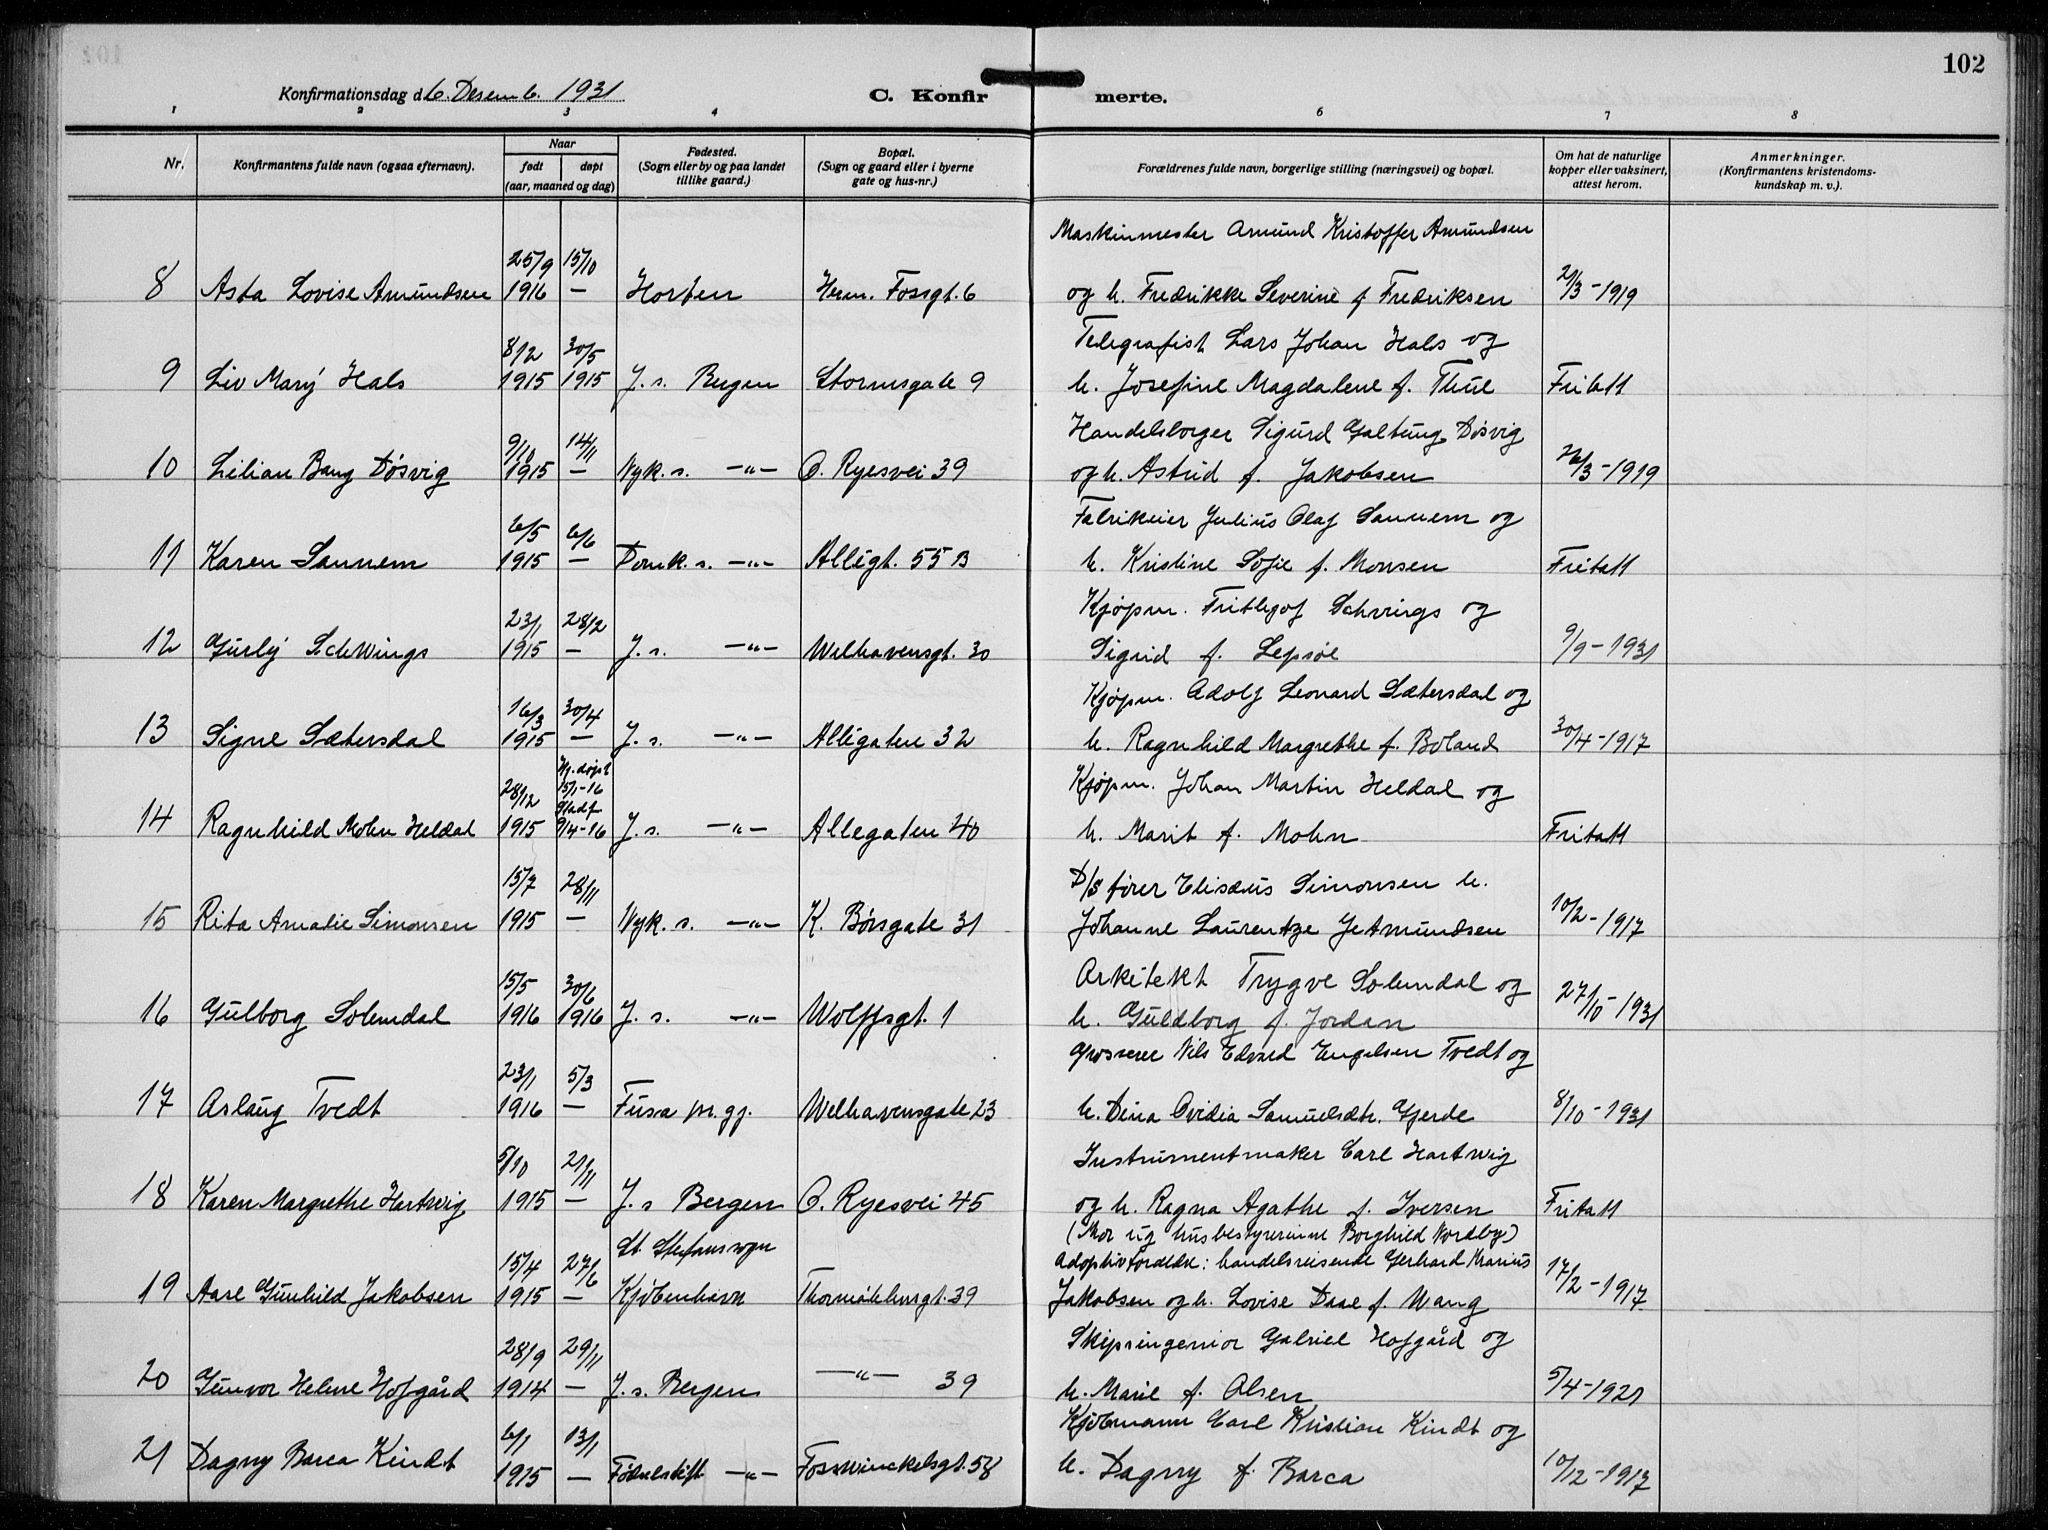 102
Konfirmationsdag d. 6. Desemb. 1931
C. Konfirmerte.
1 2 3 4 6 7 8
Nr.
Konfirmantens fulde navn (ogsaa efternavn).
Naar
født
døpt
(aar, maaned og dag)
Fødested.
(Sogn eller by og paa landet
tillike gaard.)
Bopæl.
(Sogn og gaard eller i byerne
gate og hus-nr.)
Forældrenes fulde navn, borgerlige stilling (næringsvei) og bopæl.
Om hat de naturlige
kopper eller vaksinert,
attest herom.
Anmerkninger.
(Konfirmantens kristendoms-
kundskap m. v.).
Maskinmester Amund Kristoffer Amundsen
25/9 15/10
8 Asta Lovise Amundsen 1916 — Horten Herm. Fossgt. 6 og h. Fredrikke Severine f. Fredriksen 2/3-1919
Telegrafist Lars Johan Hals og
8/2 30/5
9 Liv Marÿ Hals 1915 1915 J. s. Bergen Stormsgate 9 h. Josefine Magdalene f. Thue Fritatt
Handelsborger Sigurd Galtung Døsvig
9/10 14/11
10 Lilian Bang Døsvig 1915 — Nyk. s. —"— O. Ryesvei 39 og h. Astrid f. Jakobsen 26/3-1919
Fabrikeier Julius Olaf Sannem og
6/5 6/6
11 Karen Sannem 1915 — Domk. s. —"— Allegt. 55 B h. Kristine Sofie f. Monsen Fritatt
Kjøpm. Frithjof Schwings og
23/1 28/2
12 Gurly Schwings 1915 — J. s. —"— Welhavensgt. 30 Sigrid f. Lepsøe 9/9-1931
Kjøpm. Adolf Leonard Sætersdal og
16/3 30/4
13 Signe Sætersdal 1915 — J. s. —"— Allegaten 32 h. Ragnhild Margrethe f. Boland 30/4-1917
Hj. døpt
15/1-16
Kjøpm. Johan Martin Heldal og
28/12 stadf
14 Ragnhild Mohn Heldal 1915 9/4-16 J. s. —"— Allegaten 40 h. Marit f. Mohn Fritatt
D/S fører Elisæus Simonsen h.
15/7 28/11
15 Rita Amalie Simonsen 1915 — Nyk. s. —"— K. Børsgate 31 Johanne Laurentze f. Amundsen 10/2-1917
Arkitekt Trygve Solemdal og
15/5 30/6
16 Gulborg Solemdal 1916 1916 J. s. —"— Wolffsgt. 1 h. Guldborg f. Jordan 27/10-1931
Grosserer Nils Edvard Engelsen Tvedt og
23/1 5/3
17 Aslaug Tvedt 1916 — Fusa pr.gj. Welhavensgate 23 h. Dina Ovidia Samuelsdtr. Gjerde 8/10-1931
Instrumentmaker Carl Hartwig
5/10 21/11
18 Karen Margrethe Hartwig 1915 — J. s Bergen O. Ryesvei 45 og h. Ragna Agathe f. Iversen Fritatt
(Mor ug husbestyrerinne Borghild Nordby)
St. Stefans sogn
15/4 27/6 Adoptivforeldre: handelsreisende Gerhard Marius
19 Aase Gunhild Jakobsen 1915 — Kjøbenhavn Thormøhlensgt. 39 Jakobsen og h. Lovise Daae f. Wang 17/2-1917
Skipsingeniør Gabriel Hofgård og
28/9 29/11
20 Gunvor Helene Hofgård 1914 — J. s. Bergen —"— 39 h. Marie f. Olsen 5/4-1921
Kjøbmann Carl Kristian Kindt og
6/1 13/1
21 Dagny Barca Kindt 1915 — Fødselsstift —"— Fosswinckelsgt. 58 h. Dagny f. Barca 10/12-1917